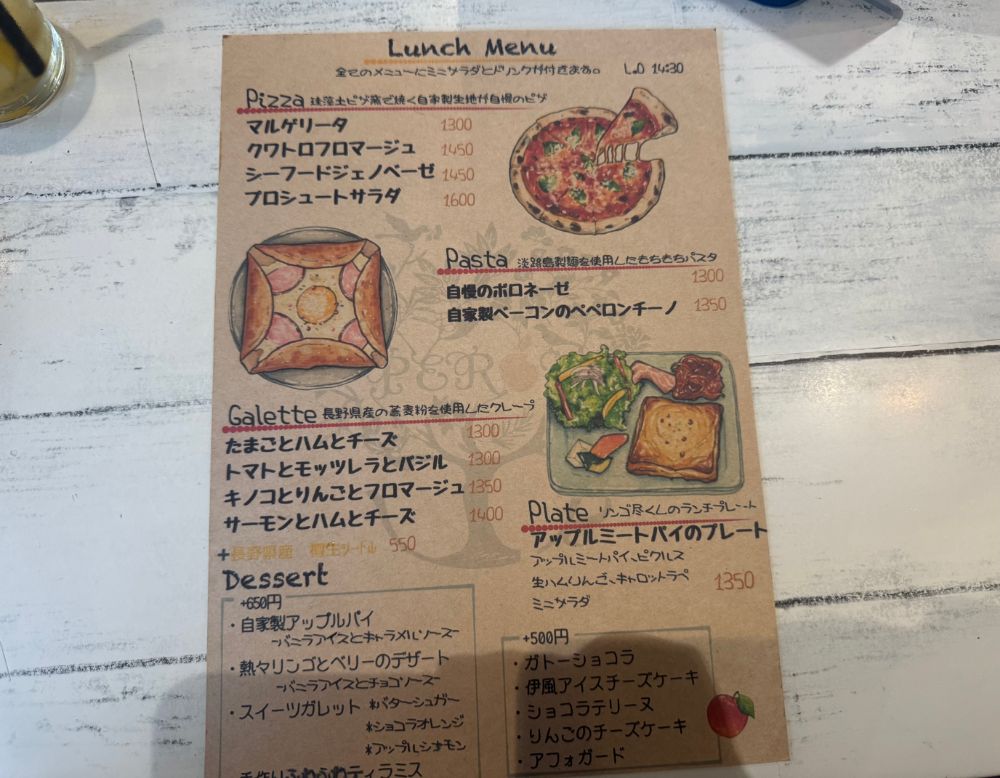 Lunch Menu
全てのメニューにミニサラダとドリンクが付きます。 L.O 14:30
Pizza 珪藻土ピザ窯で焼く自家製生地が自慢のピザ
マルゲリータ 1300
クワトロフロマージュ 1450
シーフードジェノベーゼ 1450
プロシュートサラダ 1600
Pasta 淡路島製麺を使用したもちもちパスタ
自慢のボロネーゼ 1300
自家製ベーコンのペペロンチーノ 1350
Galette 長野県産の蕎麦粉を使用したクレープ
たまごとハムとチーズ 1300
トマトとモッツレラとバジル 1300
キノコとりんごとフロマージュ 1350
サーモンとハムとチーズ 1400
+長野県産 樽生シードル 550
Plate リンゴ尽くしのランチプレート
アップルミートパイのプレート
アップルミートパイ、ピクルス
生ハムりんご、キャロットラペ 1350
ミニサラダ
Dessert
+650円
・自家製アップルパイ
〜バニラアイスとキャラメルソース〜
・熱々リンゴとベリーのデザート
〜バニラアイスとチョコソース〜
・スイーツガレット *バターシュガー
*ショコラオレンジ
*アップルシナモン
手作りふわふわティラミス
+500円
・ガトーショコラ
・伊風アイスチーズケーキ
・ショコラテリーヌ
・りんごのチーズケーキ
・アフォガード